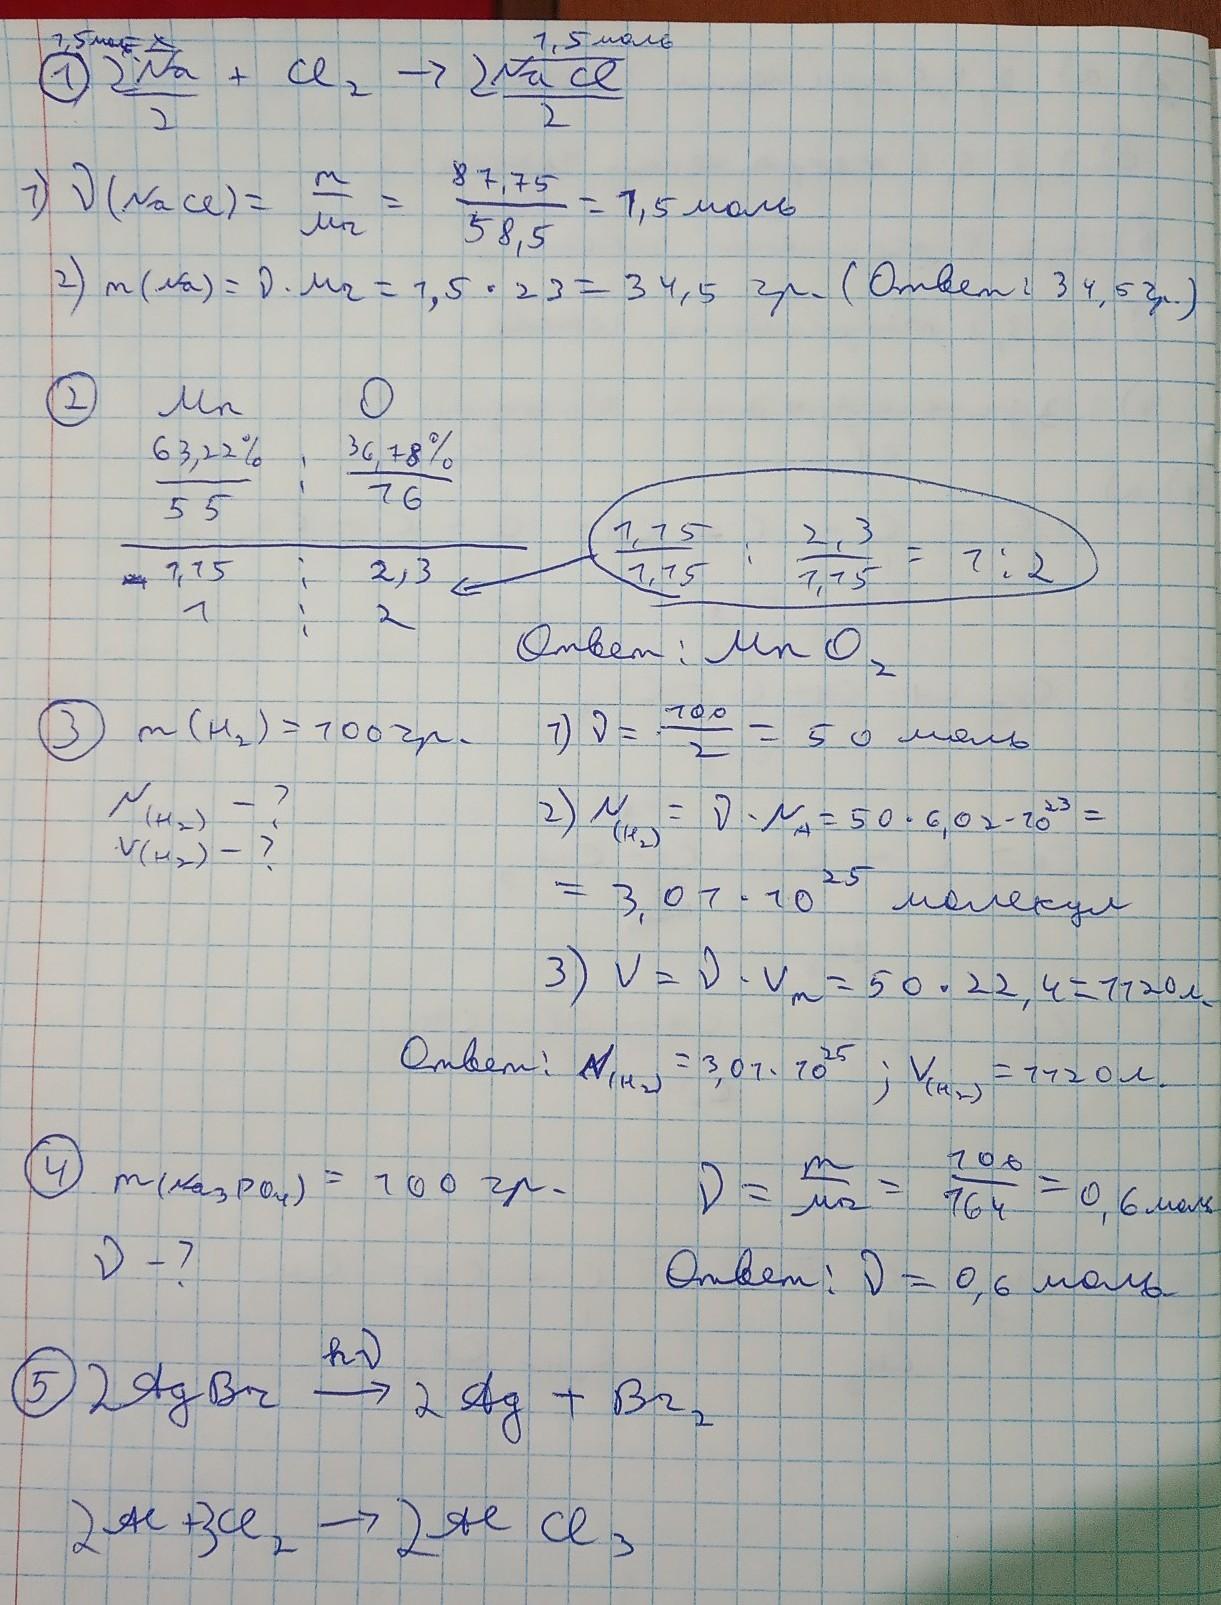 1,5 моль = x 1,5 моль
① 2Na/2 + Cl₂ → 2NaCl/2
1) ν(NaCl) = m/Mr = 87,75/58,5 = 1,5 моль
2) m(Na) = ν · Mr = 1,5 · 23 = 34,5 гр. (Ответ: 34,5 гр.)
② Mn O
63,22%/55 : 36,78%/16
1,15 : 2,3 1,15/1,15 : 2,3/1,15 = 1:2
1 : 2
Ответ: MnO₂
③ m(H₂) = 100 гр. 1) ν = 100/2 = 50 моль
N(H₂) – ? 2) N(H₂) = ν · NA = 50 · 6,02 · 10²³ =
V(H₂) – ?
= 3,01 · 10²⁵ молекул
3) V = ν · Vm = 50 · 22,4 = 1120 л.
Ответ: N(H₂) = 3,01 · 10²⁵ ; V(H₂) = 1120 л.
④ m(Na₃PO₄) = 100 гр. ν = m/Mr = 100/164 = 0,6 моль
ν – ? Ответ: ν = 0,6 моль
hν
⑤ 2AgBr → 2Ag + Br₂
2Al + 3Cl₂ → 2AlCl₃